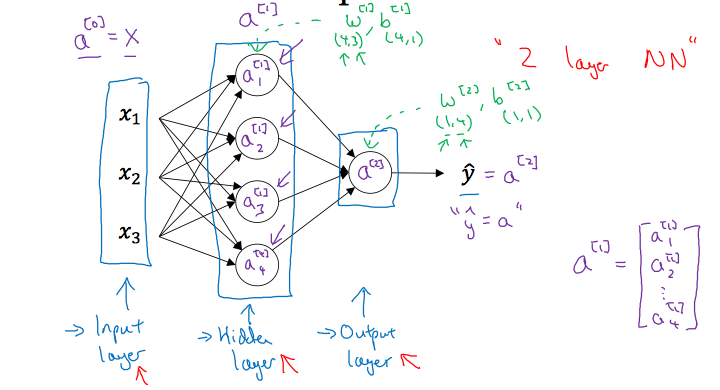 a^[0] = X
a^[1]
w^[1], b^[1]
(4,3) (4,1)
"2 layer NN"
x₁
x₂
x₃
a₁^[1]
a₂^[1]
a₃^[1]
a₄^[1]
w^[2], b^[2]
(1,4) (1,1)
a^[2]
ŷ = a^[2]
"ŷ = a"
a^[1] = [a₁^[1]
a₂^[1]
⋮
a₄^[1]]
→ Input
layer
→ Hidden
layer
→ Output
layer